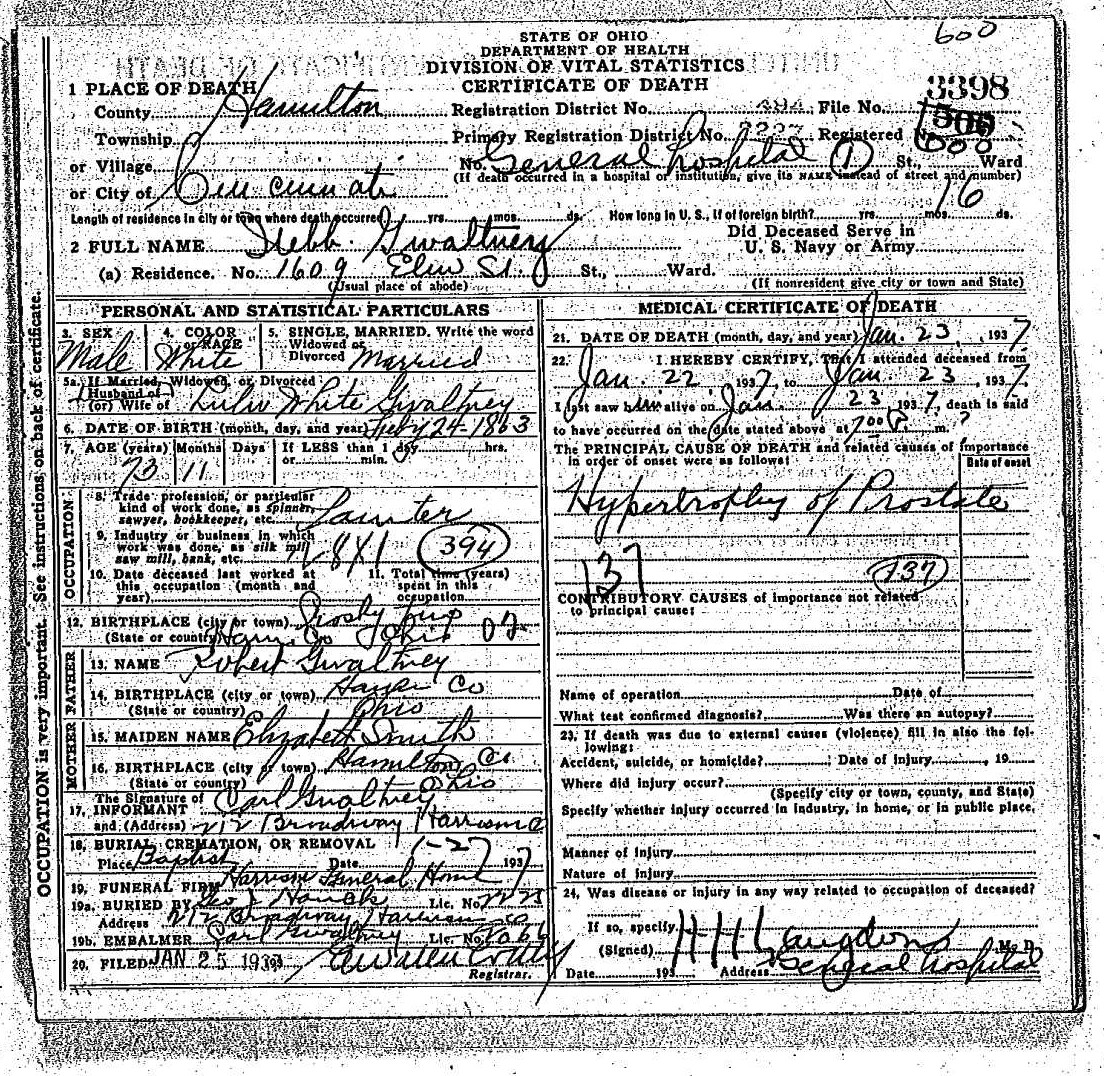 600
STATE OF OHIO
DEPARTMENT OF HEALTH
DIVISION OF VITAL STATISTICS
CERTIFICATE OF DEATH
3398
1 PLACE OF DEATH
County Hamilton Registration District No. 494 File No.
Township Primary Registration District No. Registered No.
or Village No. General Hospital (1) St., Ward
(If death occurred in a hospital or institution, give its NAME instead of street and number)
or City of Cincinnati 16
Length of residence in city or town where death occurred yrs. mos. ds. How long in U. S., if of foreign birth? yrs. mos. ds.
2 FULL NAME Webb Gwaltney Did Deceased Serve in U. S. Navy or Army
(a) Residence. No. 1609 Elm St. St., Ward.
(Usual place of abode) (If nonresident give city or town and State)
PERSONAL AND STATISTICAL PARTICULARS
3. SEX Male 4. COLOR or RACE White 5. SINGLE, MARRIED, Widowed or Divorced Write the word Married
5a. If Married, Widowed, or Divorced
Husband of
(or) Wife of Lulu White Gwaltney
6. DATE OF BIRTH (month, day, and year) Feby 24-1863
7. AGE (years) 73 Months 11 Days If LESS than 1 day hrs. or min.
OCCUPATION
8. Trade, profession, or particular kind of work done, as spinner, sawyer, bookkeeper, etc.
9. Industry or business in which work was done, as silk mill, saw mill, bank, etc. (394)
10. Date deceased last worked at this occupation (month and year)
11. Total time (years) spent in this occupation
12. BIRTHPLACE (city or town) Crosby Twp
(State or country) Ham. Co Ohio
FATHER
13. NAME Robert Gwaltney
14. BIRTHPLACE (city or town) Co
(State or country) Ohio
MOTHER
15. MAIDEN NAME Elizabeth Smith
16. BIRTHPLACE (city or town) Hamilton Co
(State or country) Ohio
17. The Signature of INFORMANT Carl Gwaltney
and (Address) 212 Broadway Harrison O
18. BURIAL, CREMATION, OR REMOVAL
Place Baptist Date 1-27 1937
19. FUNERAL FIRM Harrison Funeral Home
19a. BURIED BY Geo J Hauck Lic. No.
Address 212 Broadway Harrison O
19b. EMBALMER Carl Gwaltney Lic. No.
20. FILED JAN 25 193
Registrar.
MEDICAL CERTIFICATE OF DEATH
21. DATE OF DEATH (month, day, and year) Jan. 23, 1937
22. I HEREBY CERTIFY, That I attended deceased from
Jan. 22, 1937, to Jan 23, 1937.
I last saw him alive on Jan. 23 1937, death is said
to have occurred on the date stated above at 7:00 P m.
The PRINCIPAL CAUSE OF DEATH and related causes of importance
in order of onset were as follows: Date of onset
Hypertrophy of Prostate
137 (137)
CONTRIBUTORY CAUSES of importance not related
to principal cause:
Name of operation Date of
What test confirmed diagnosis? Was there an autopsy?
23. If death was due to external causes (violence) fill in also the fol-
lowing:
Accident, suicide, or homicide? Date of injury , 19
Where did injury occur?
(Specify city or town, county, and State)
Specify whether injury occurred in industry, in home, or in public place.
Manner of injury
Nature of injury
24. Was disease or injury in any way related to occupation of deceased?
If so, specify
(Signed) H H Langdon M. D.
Date 193 Address General Hospital
OCCUPATION is very important. See instructions on back of certificate.